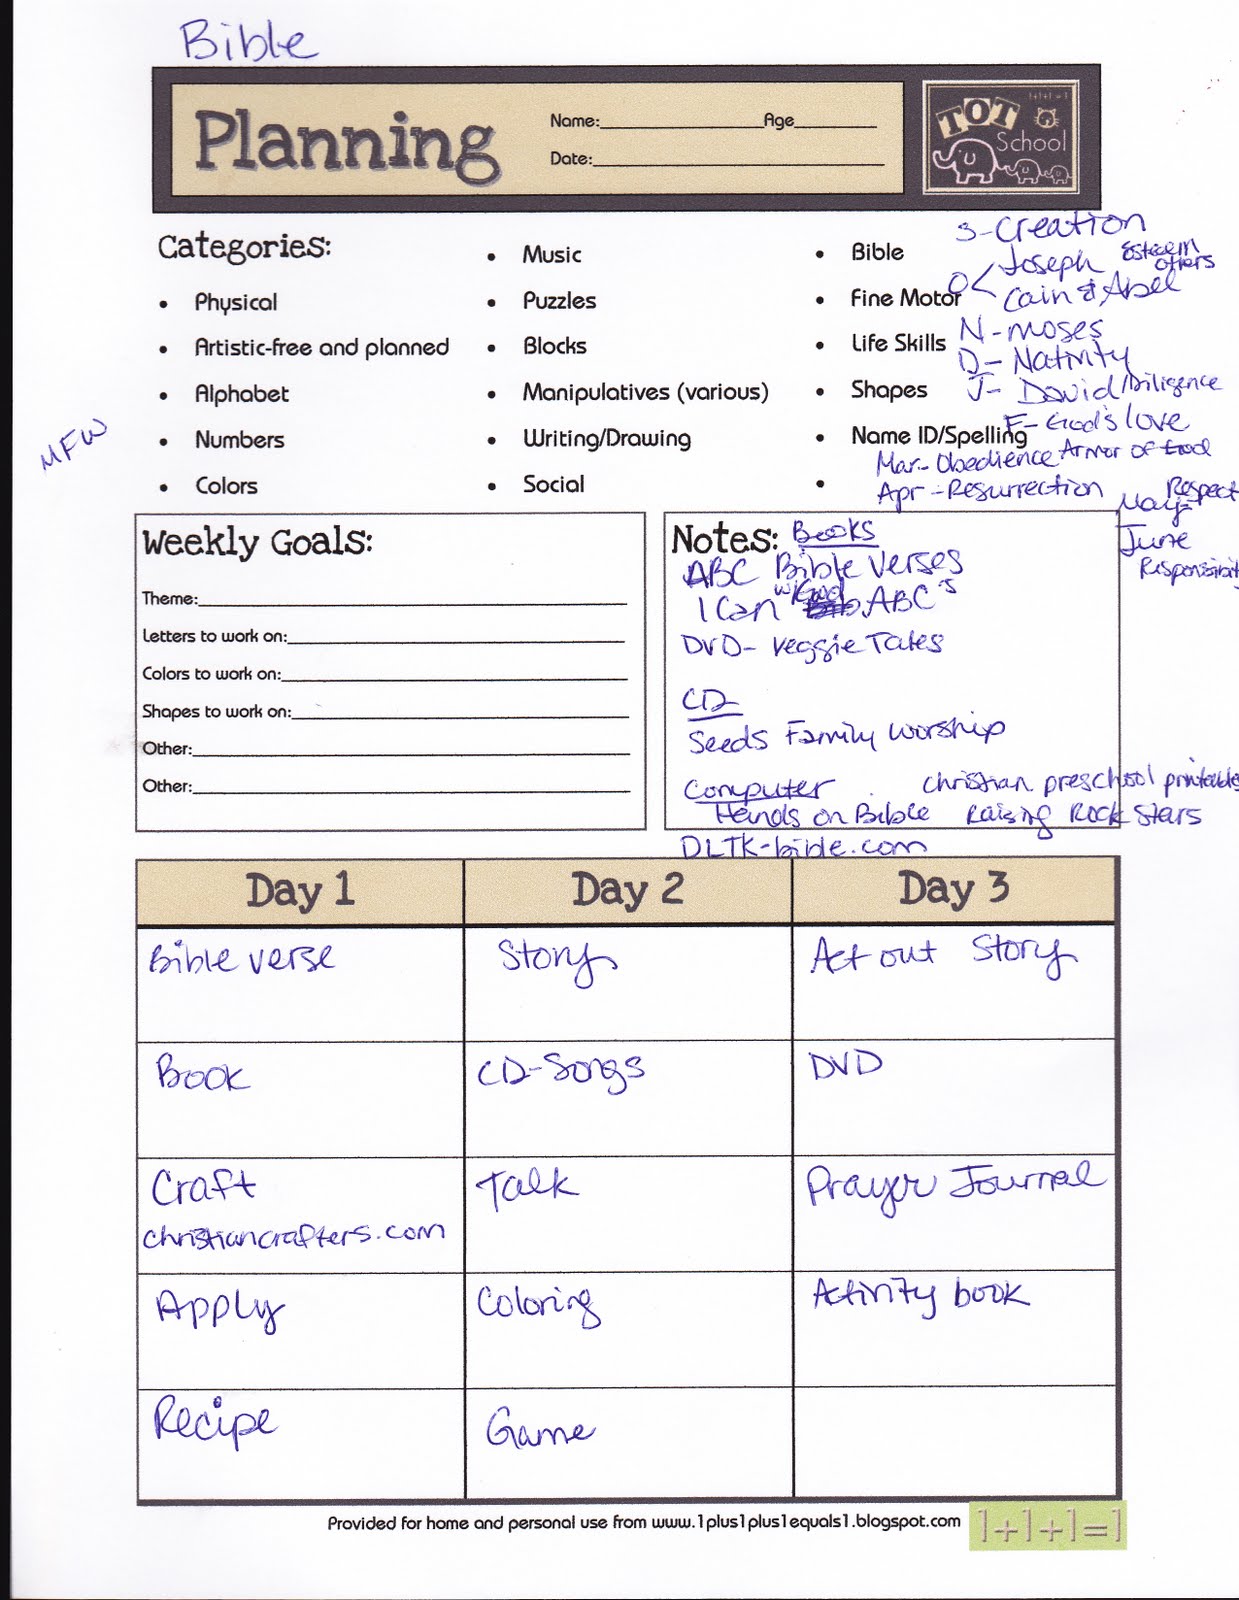 Bible
Planning
Name:____ Age____
Date:____
1+1+1=1
TOT
School
Categories:
• Physical
• Artistic-free and planned
• Alphabet
• Numbers
• Colors
• Music
• Puzzles
• Blocks
• Manipulatives (various)
• Writing/Drawing
• Social
• Bible
• Fine Motor
• Life Skills
• Shapes
• Name ID/Spelling
•
MFW
S-Creation
O < Joseph Esteem others
Cain & Abel
N-moses
D- Nativity
J- David/Diligence
F- God's love
Mar- Obedience Armor of God
Apr-Resurrection
May- Respect
June
Responsibilit
Weekly Goals:
Theme:____
Letters to work on:____
Colors to work on:____
Shapes to work on:____
Other:____
Other:____
Notes: Books
ABC Bible Verses
I Can w/God ABC's
DVD- Veggie Tales
CD
Seeds Family Worship
Computer christian preschool printables
Hands on Bible Raising Rock Stars
DLTK-bible.com
Day 1 Day 2 Day 3
Bible verse Story Act out Story
Book CD-Songs DVD
Craft Talk Prayer Journal
christiancrafters.com
Apply Coloring Activity book
Recipe Game
Provided for home and personal use from www.1plus1plus1equals1.blogspot.com
1+1+1=1